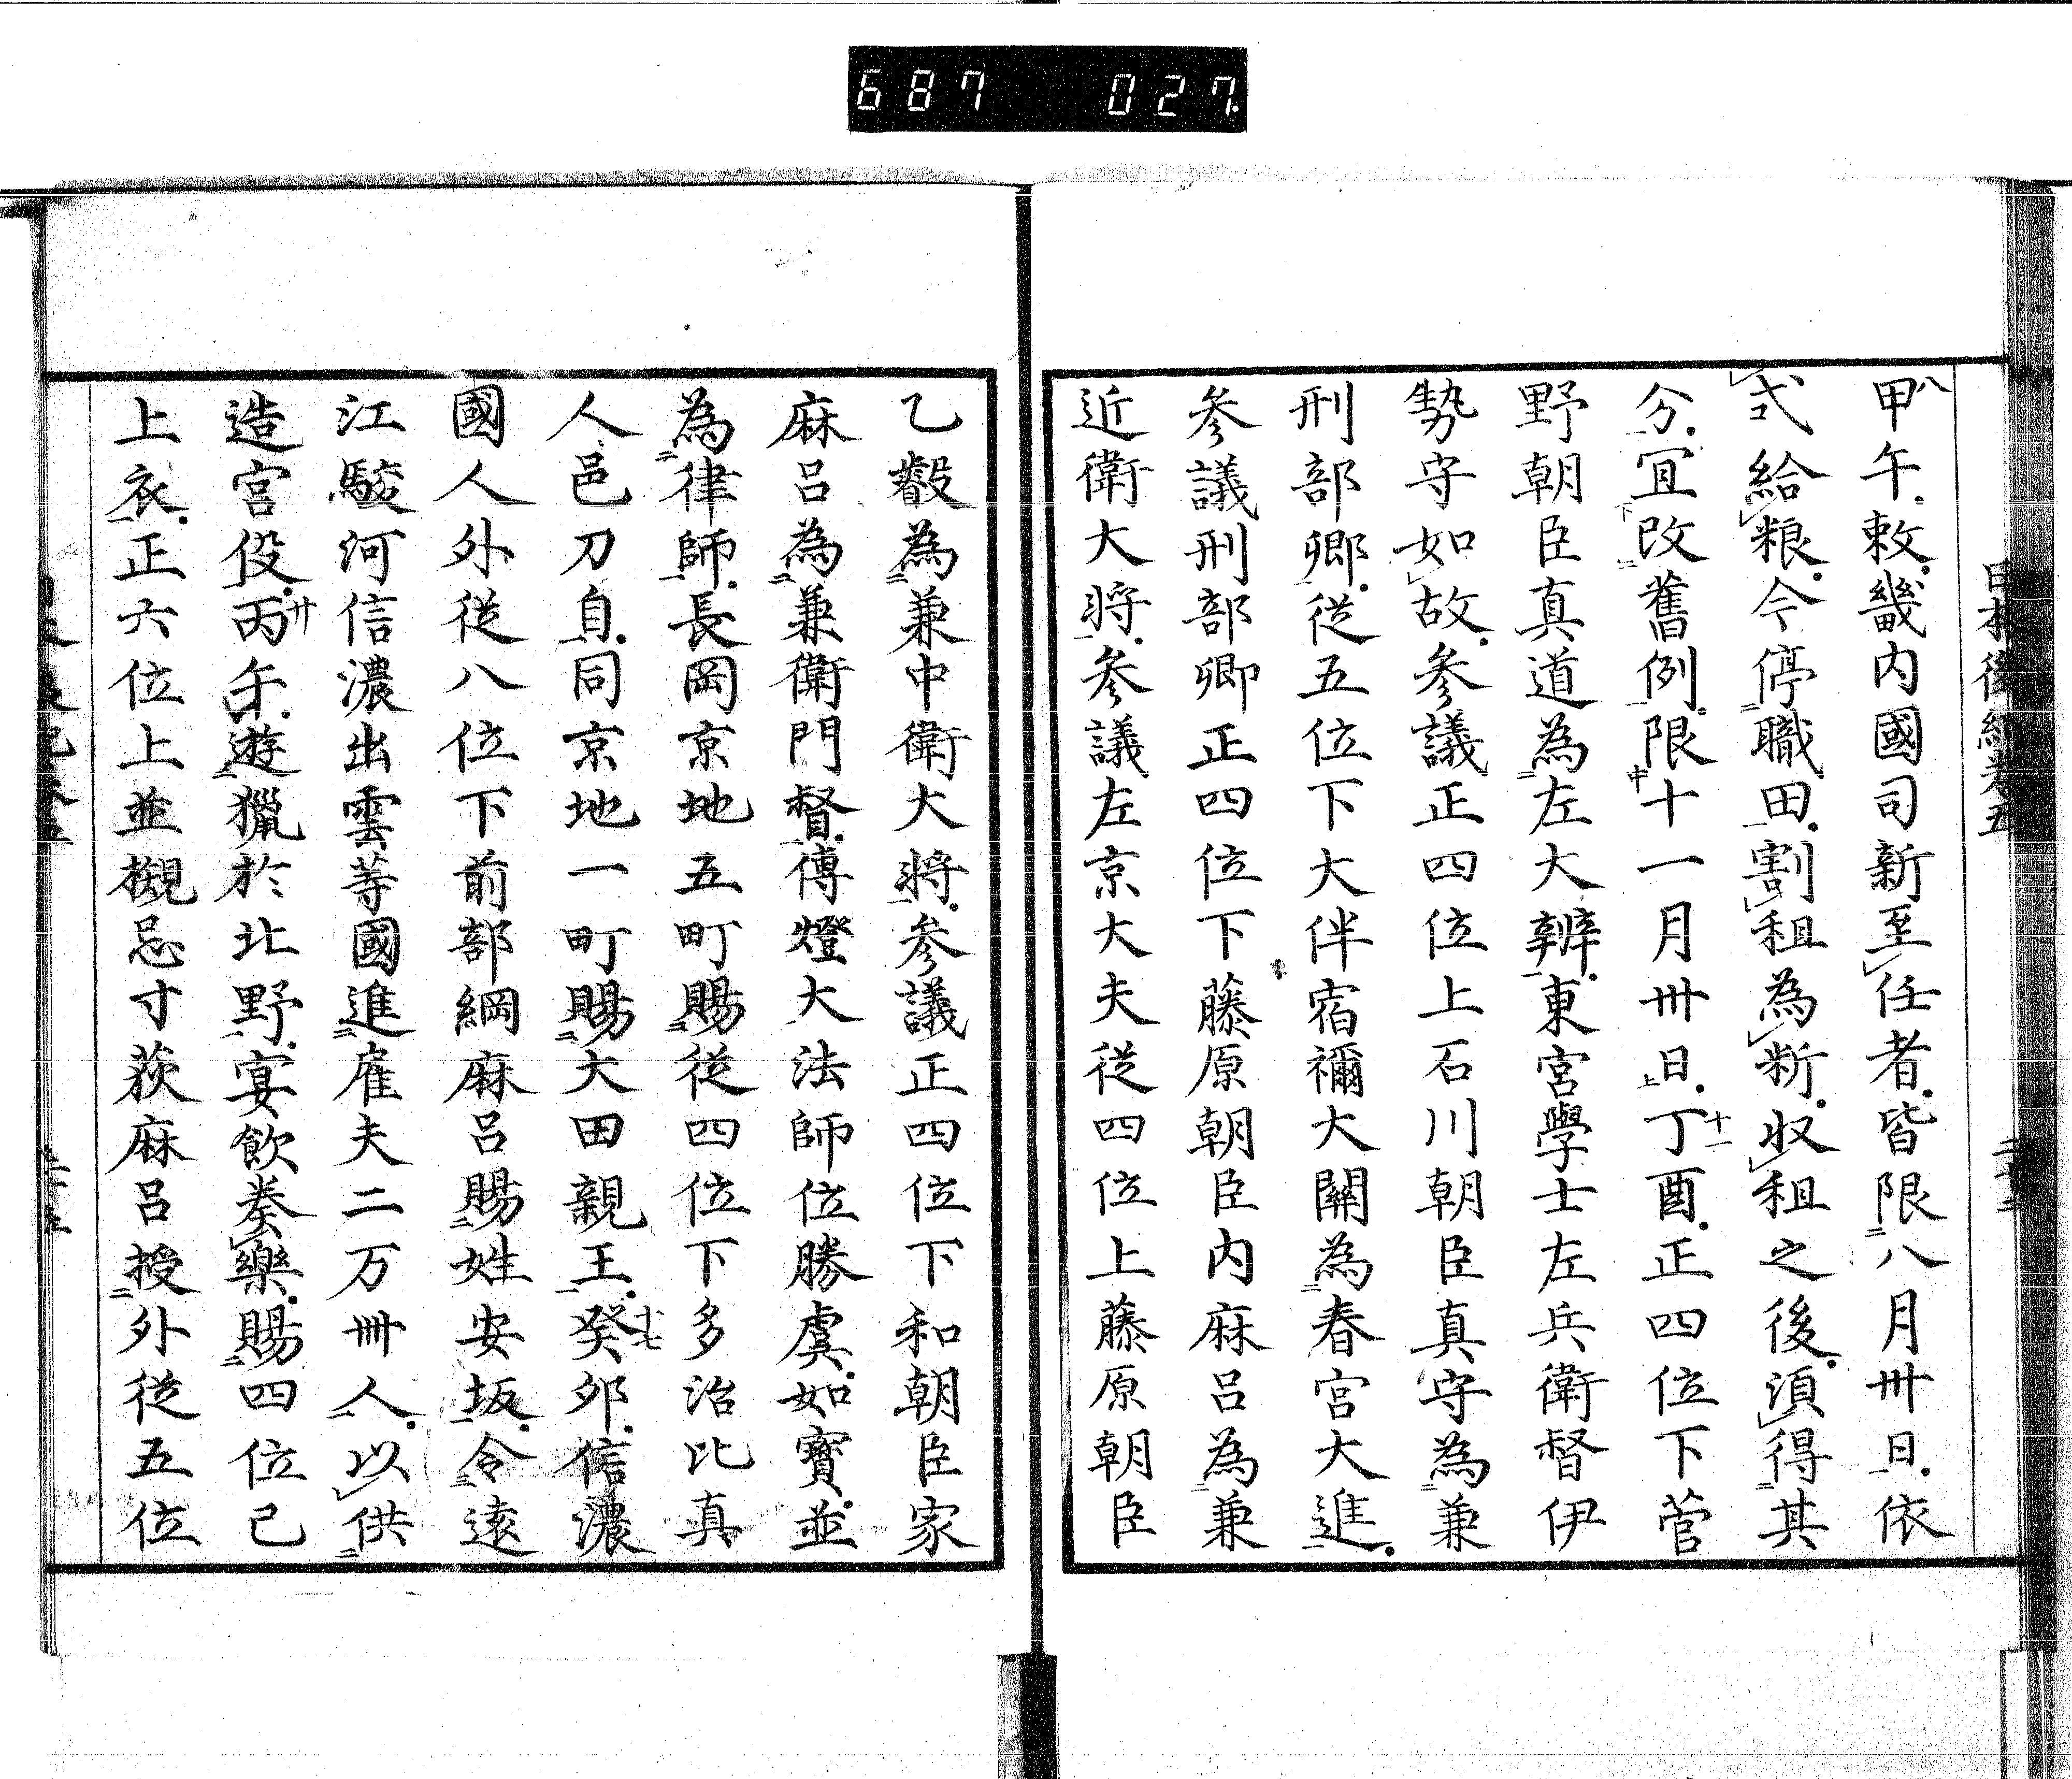 687 027
日本後紀卷五
甲午敕畿内國司新至任者皆限八月卅日依
式給粮今停職田割租為断収租之後湏得其
分冝改舊例限十一月卅日丁酉正四位下菅
野朝臣真道為左大辨東宮學士左兵衛督伊
勢守如故参議正四位上石川朝臣真守為兼
刑部卿從五位下大伴宿禰大關為春宮大進
参議刑部卿正四位下藤原朝臣内麻呂為兼
近衛大将参議左京大夫從四位上藤原朝臣
乙叡為兼中衛大将参議正四位下和朝臣家
麻呂為兼衛門督傳燈大法師位勝虞如寶並
為律師長岡京地五町賜從四位下多治比真
人邑刀自同京地一町賜大田親王癸卯信濃
國人外從八位下前部綱麻呂賜姓安坂令遠
江駿河信濃出雲等國進雇夫二万卌人以供
造宮役丙午遊獵於北野宴飲奏樂賜四位已
上衣正六位上並槻忌寸荻麻呂授外從五位